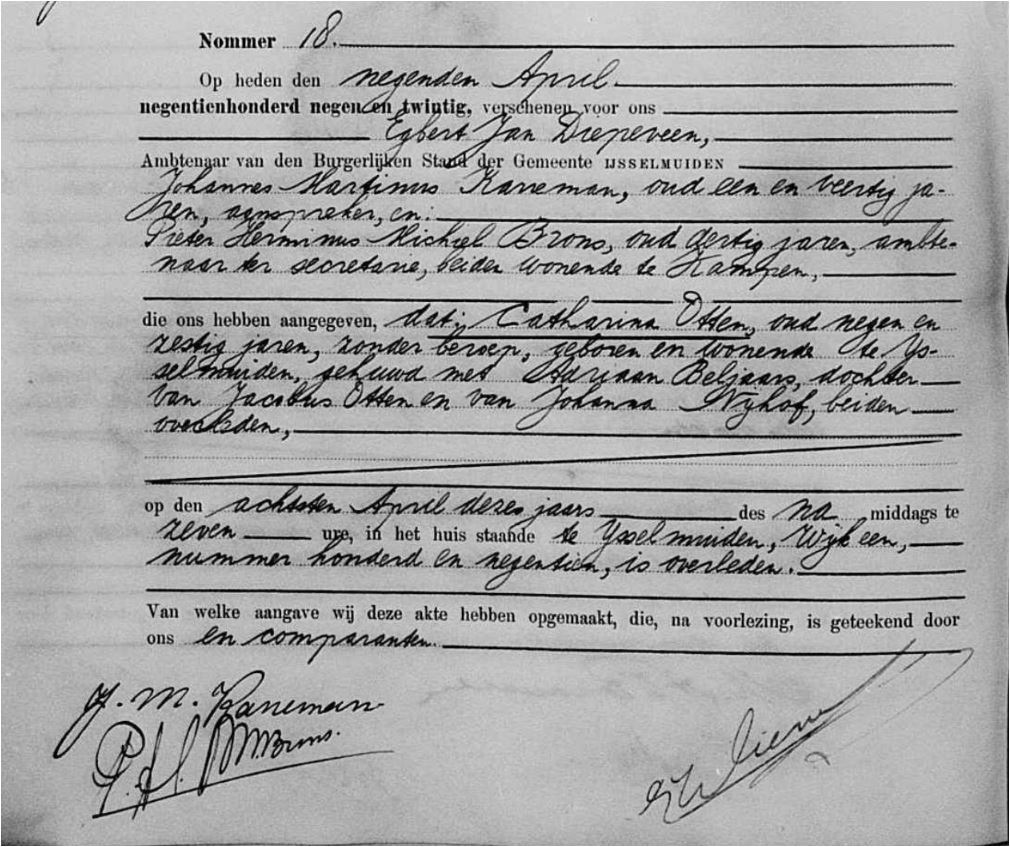 Nommer 18.
Op heden den negenden April
negentienhonderd negen en twintig, verschenen voor ons
Egbert Jan Diepeveen,
Ambtenaar van den Burgerlijken Stand der Gemeente IJSSELMUIDEN
Johannes Martinus Kaneman, oud een en veertig ja-
ren, aanspreker, en:
Pieter Herminus Michiel Brons, oud dertig jaren, ambte-
naar ter secretarie, beiden wonende te Kampen,
die ons hebben aangegeven, dat: Catharina Otten, oud negen en
zestig jaren, zonder beroep, geboren en wonende te Ys-
selmuiden, gehuwd met Adrjaan Beljaars, dochter
van Jacobus Otten en van Johanna Nyhof, beiden
overleden,
op den achtsten April dezes jaars des na middags te
zeven ure, in het huis staande te Ysselmuiden, Wijk een,
nummer honderd en negentien, is overleden.
Van welke aangave wij deze akte hebben opgemaakt, die, na voorlezing, is geteekend door
ons en comparanten.
J. M. Kaneman
P. H. M. Brons.